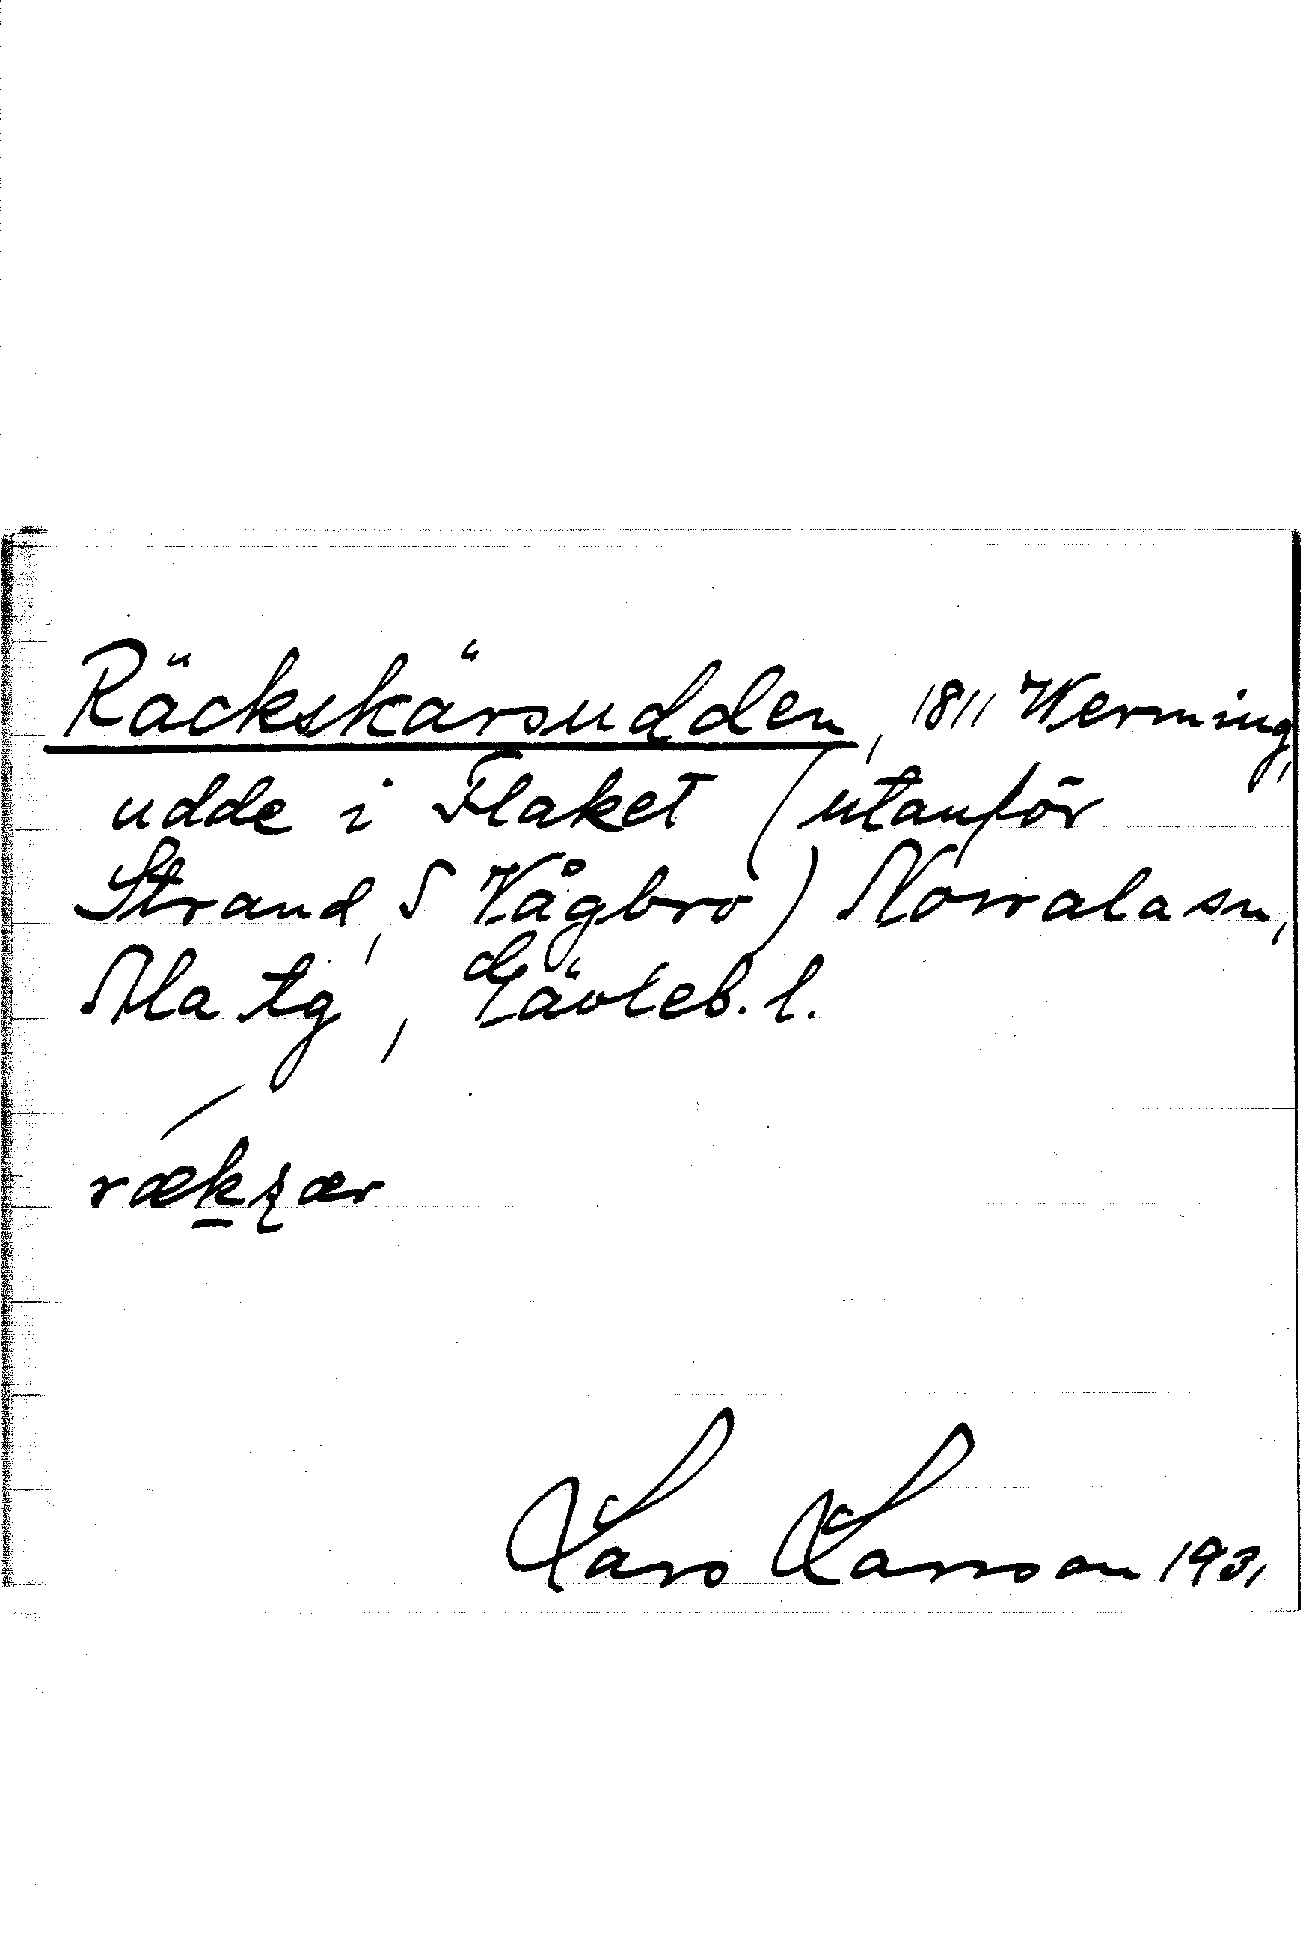 Räckskärsudden, 1811 Werming,
udde i Flaket (utanför
Strand, S Vågbro) Norrala sn,
Ala tg, Gävleb. l.
rækʂær
Lars Larsson 1931